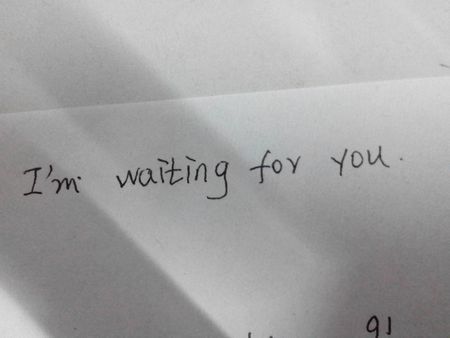 I'm waiting for you.
91